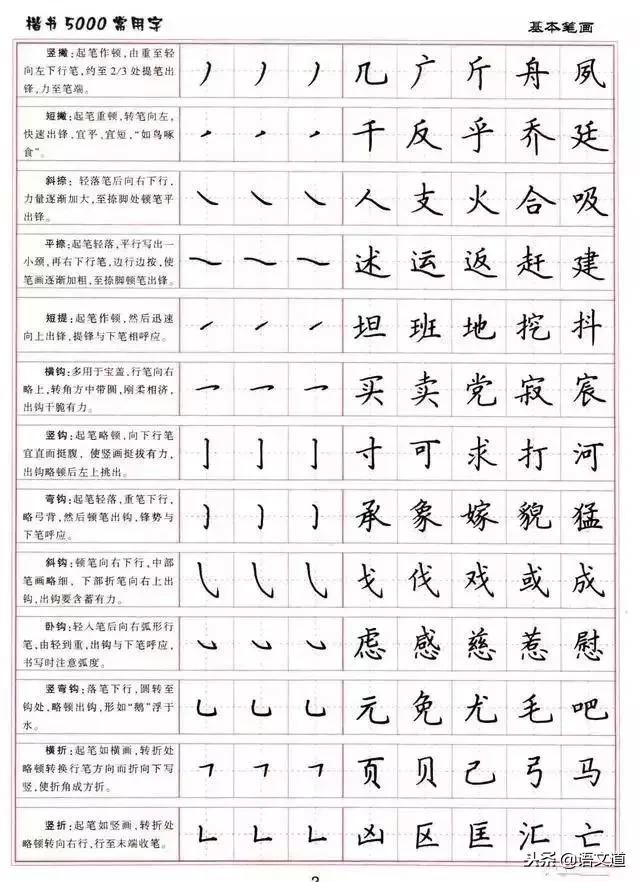 楷书5000常用字
基本笔画
竖撇:起笔作顿,由重至轻
向左下行笔,约至2/3处提笔出
锋,力至笔端。
几 广 斤 舟 夙
短撇:起笔重顿,转笔向左,
快速出锋,宜平,宜短,“如鸟啄
食”。
干 反 乎 乔 廷
斜捺:轻落笔后向右下行,
力量逐渐加大,至捺脚处顿笔平
出锋。
人 支 火 合 吸
平捺:起笔轻落,平行写出一
小颈,再右下行笔,边行边按,使
笔画逐渐加粗,至捺脚顿笔出锋。
述 运 返 赶 建
短提:起笔作顿,然后迅速
向上出锋,提锋与下笔相呼应。
坦 班 地 挖 抖
横钩:多用于宝盖,行笔向右
略上,转角方中带圆,刚柔相济,
出钩干脆有力。
买 卖 党 寂 宸
竖钩:起笔略顿,向下行笔
宜直而挺腹,使竖画挺拔有力,
出钩略顿后左上挑出。
寸 可 求 打 河
弯钩:起笔轻落,重笔下行,
略弓背,然后顿笔出钩,锋势与
下笔呼应。
承 象 嫁 貌 猛
斜钩:顿笔向右下行,中部
笔画略细,下部折笔向右上出
钩,出钩要含蓄有力。
戈 伐 戏 或 成
卧钩:轻入笔后向右弧形行
笔,由轻到重,出钩与下笔呼应,
书写时注意弧度。
虑 感 慈 惹 慰
竖弯钩:落笔下行,圆转至
钩处,略顿出钩,形如“鹅”浮于
水。
元 免 尤 毛 吧
横折:起笔如横画,转折处
略顿转换行笔方向而折向下写
竖,使折角成方折。
页 贝 己 弓 马
竖折:起笔如竖画,转折处
略顿转向右行,行至末端收笔。
凶 区 匡 汇 亡
头条@语文道